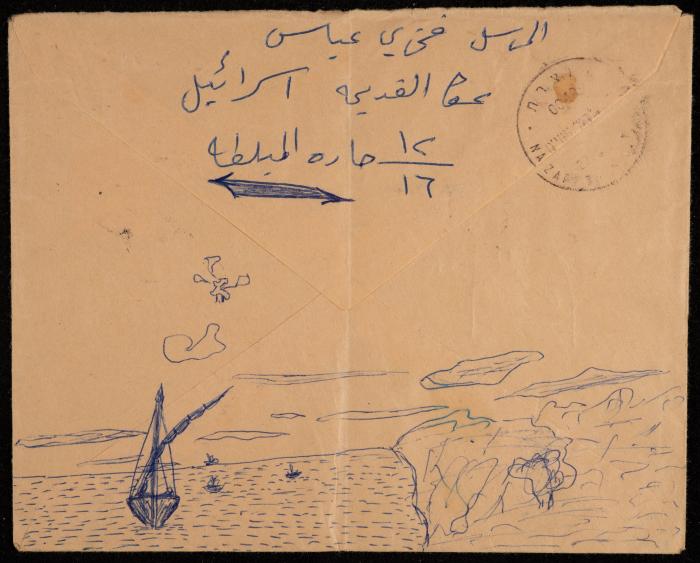 المرسل فخري عباس
عكا القديمة اسرائيل
١٢/١٦ حاره المبلطه
נצרת
NAZARE